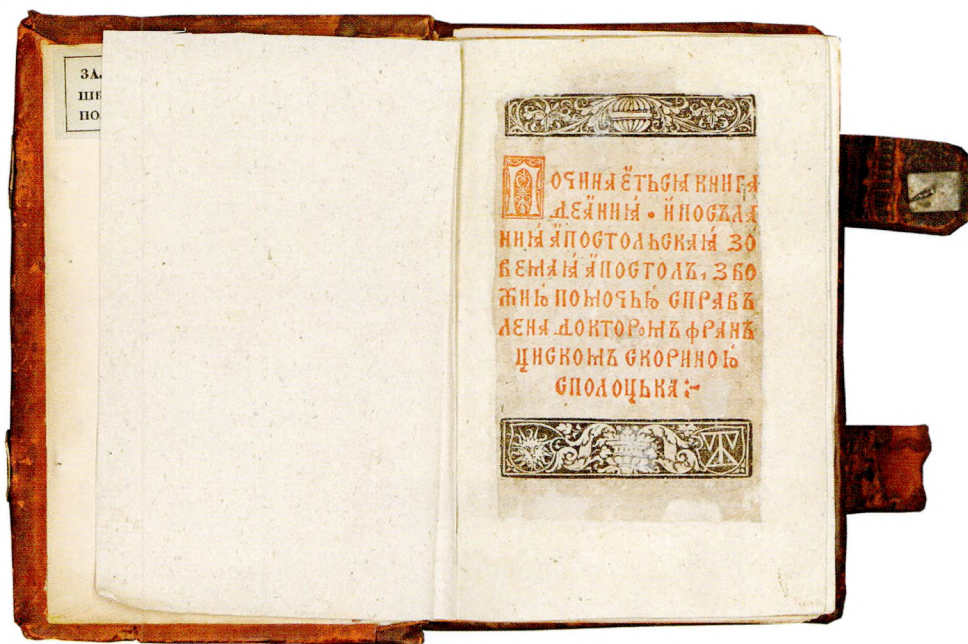 ЗА
ПО
ПОЧИНАЁТЬСꙖ КНИГА
ДЕӒНИꙖ • И҆ ПОСЪЛА
НИꙖ А҆ПОСТОЛЬСКАꙖ ЗО
ВЕМАꙖ А҆ПОСТОЛЪ, З БО
ЖИЮ ПОМОЧЬЮ СПРАВЪ
ЛЕНА ДОКТОРОМЪ ФРАНЪ
ЦИСКОМЪ СКОРИНОЮ
СПОЛОЦЬКА :~